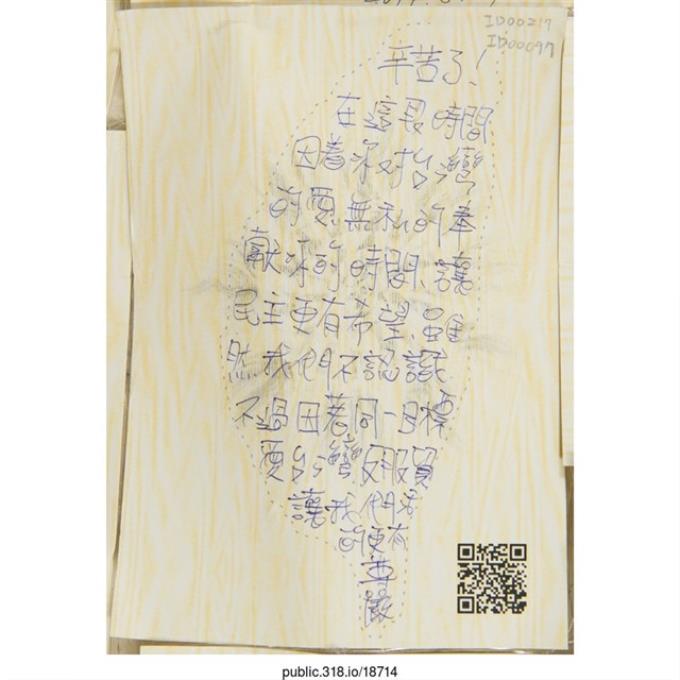 ID00217
ID00097
辛苦了!
在這段時間
因着你對台灣
的愛,無私的奉
獻你的時間,讓
民主更有希望,雖
然我們不認識
不過因着同一目標
愛台灣反服貿
讓我們活
的更有
尊嚴
public.318.io/18714